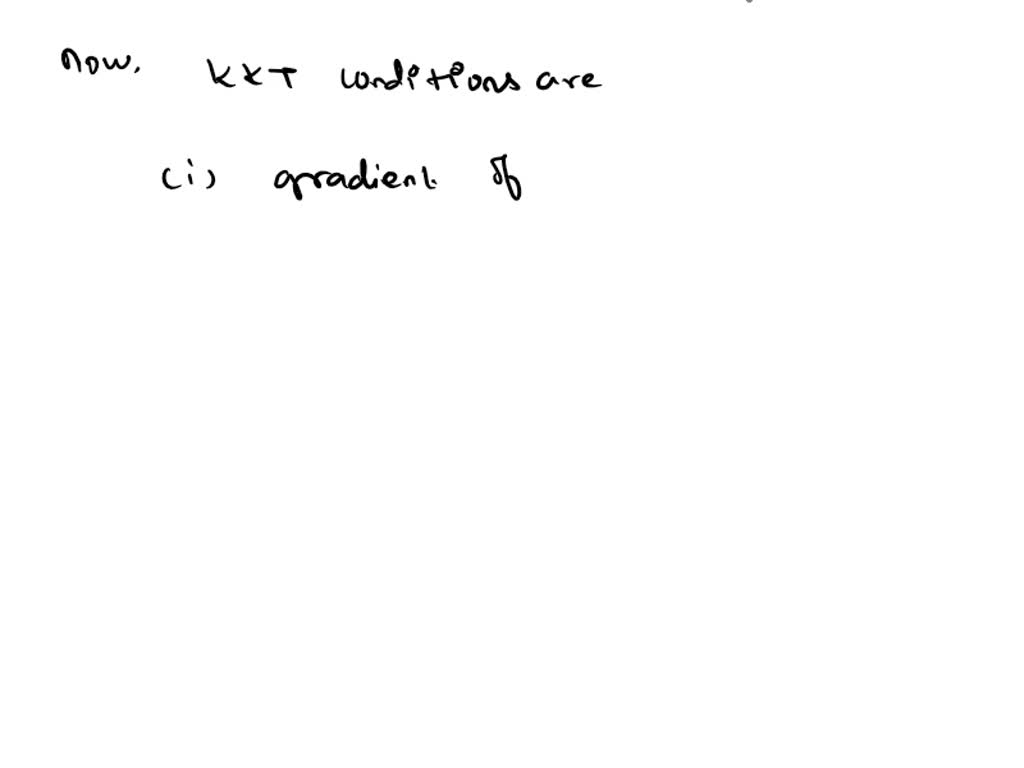 now. KKT conditions are
(i) gradient of